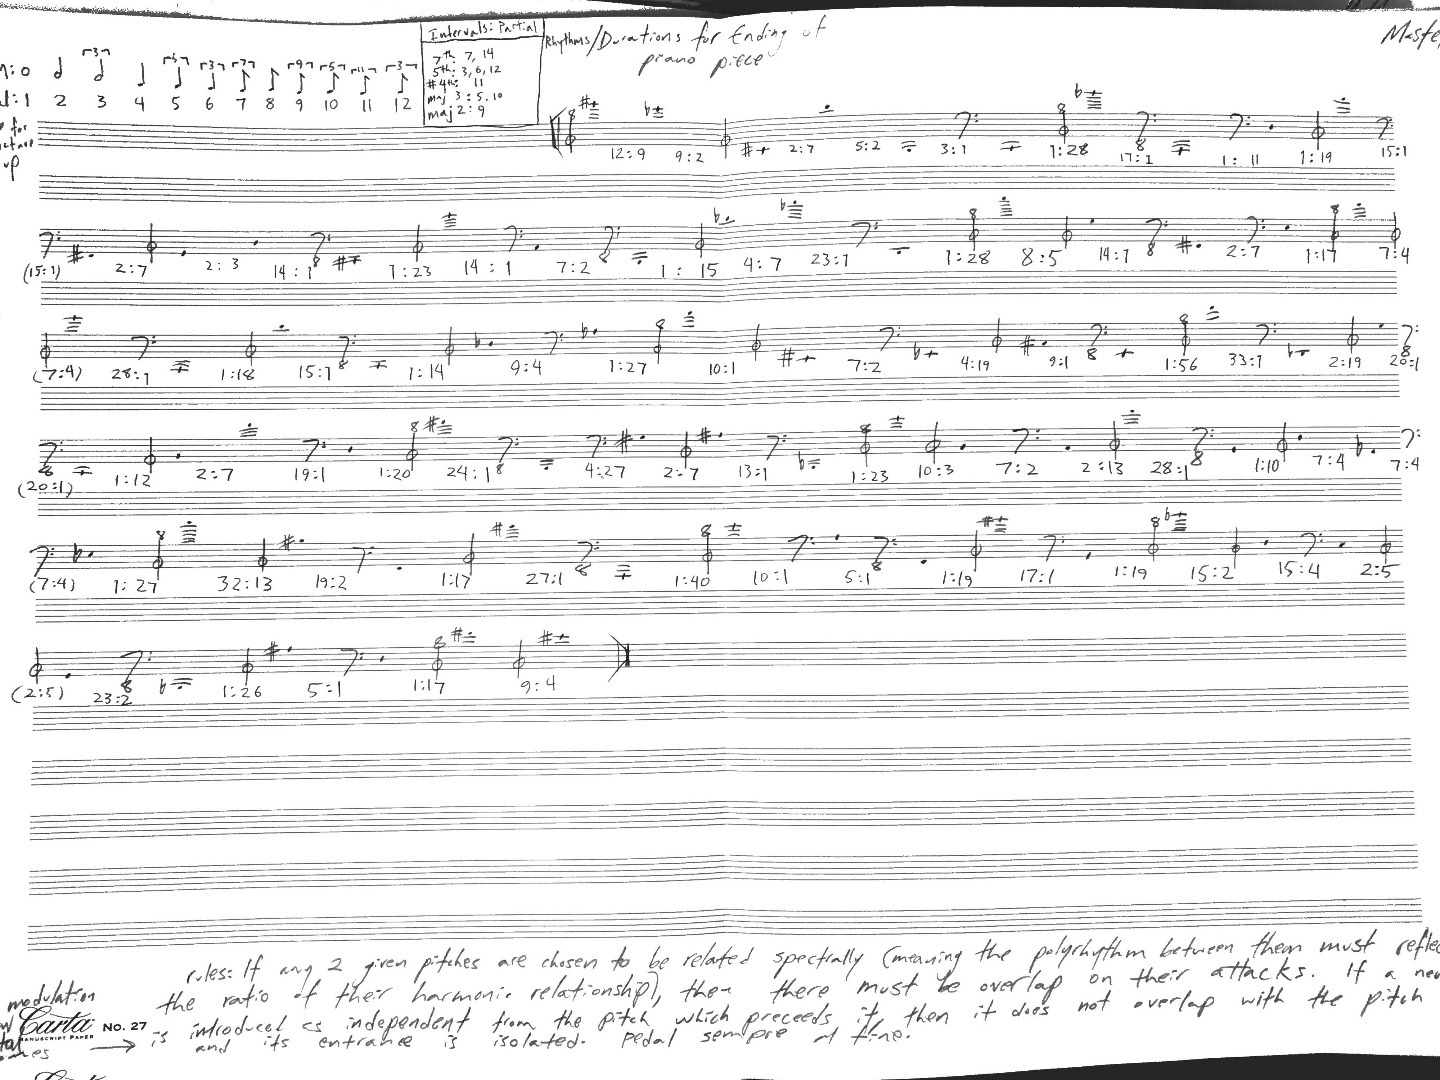 Intervals: Partial
7th: 7, 14
5th: 3, 6, 12
#4th: 11
maj 3: 5, 10
maj 2: 9
Rhythms/Durations for Ending of
piano piece
3 5 3 7 9 5 11 3
1 2 3 4 5 6 7 8 9 10 11 12
for
up
12:9 9:2 2:7 5:2 3:1 1:28 17:1 1:11 1:19 15:1
(15:1) 2:7 2:3 14:1 1:23 14:1 7:2 1:15 4:7 23:1 1:28 8:5 14:1 2:7 1:17 7:4
(7:4) 28:1 1:18 15:1 1:14 9:4 1:27 10:1 7:2 4:19 9:1 1:56 33:1 2:19 20:1
(20:1) 1:12 2:7 19:1 1:20 24:1 4:27 2:7 13:1 1:23 10:3 7:2 2:13 28:1 1:10 7:4 7:4
(7:4) 1:27 32:13 19:2 1:17 27:1 1:40 10:1 5:1 1:19 17:1 1:19 15:2 15:4 2:5
(2:5) 23:2 1:26 5:1 1:17 9:4
rules: If any 2 given pitches are chosen to be related spectrally (meaning the polyrhythm between them must
the ratio of their harmonic relationship), then there must be overlap on their attacks. If a
is introduced as independent from the pitch which preceeds it, then it does not overlap with the pitch
and its entrance is isolated. Pedal sempre al fine.
modulation
Carta No. 27
MANUSCRIPT PAPER